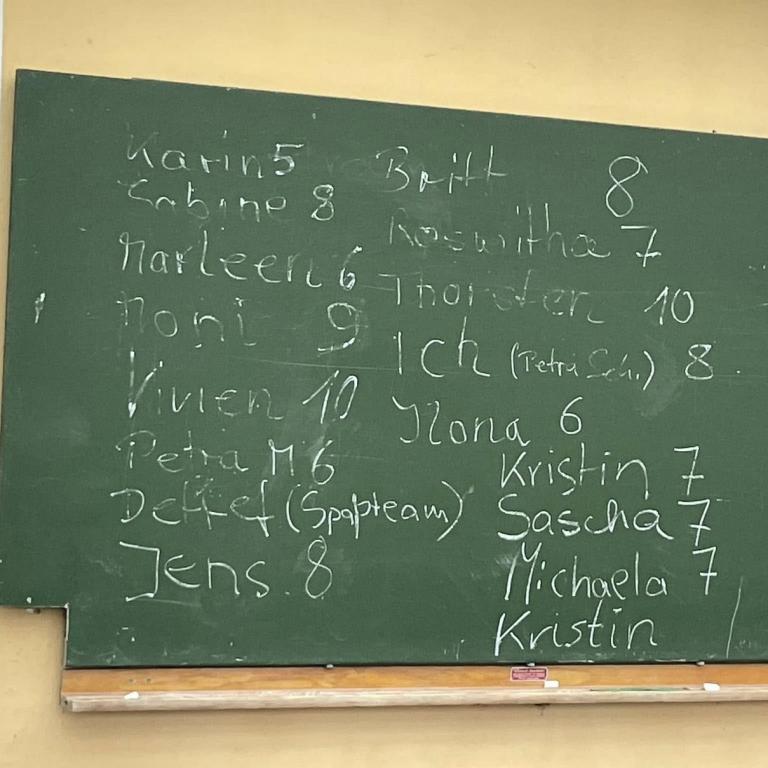 Karin 5
Sabine 8
Marleen 6
Moni 9
Vivien 10
Petra M 6
Detlef (Spapteam)
Jens 8
Britt 8
Roswitha 7
Thorsten 10
Ich (Petra Sch.) 8
Ilona 6
Kristin 7
Sascha 7
Michaela 7
Kristin